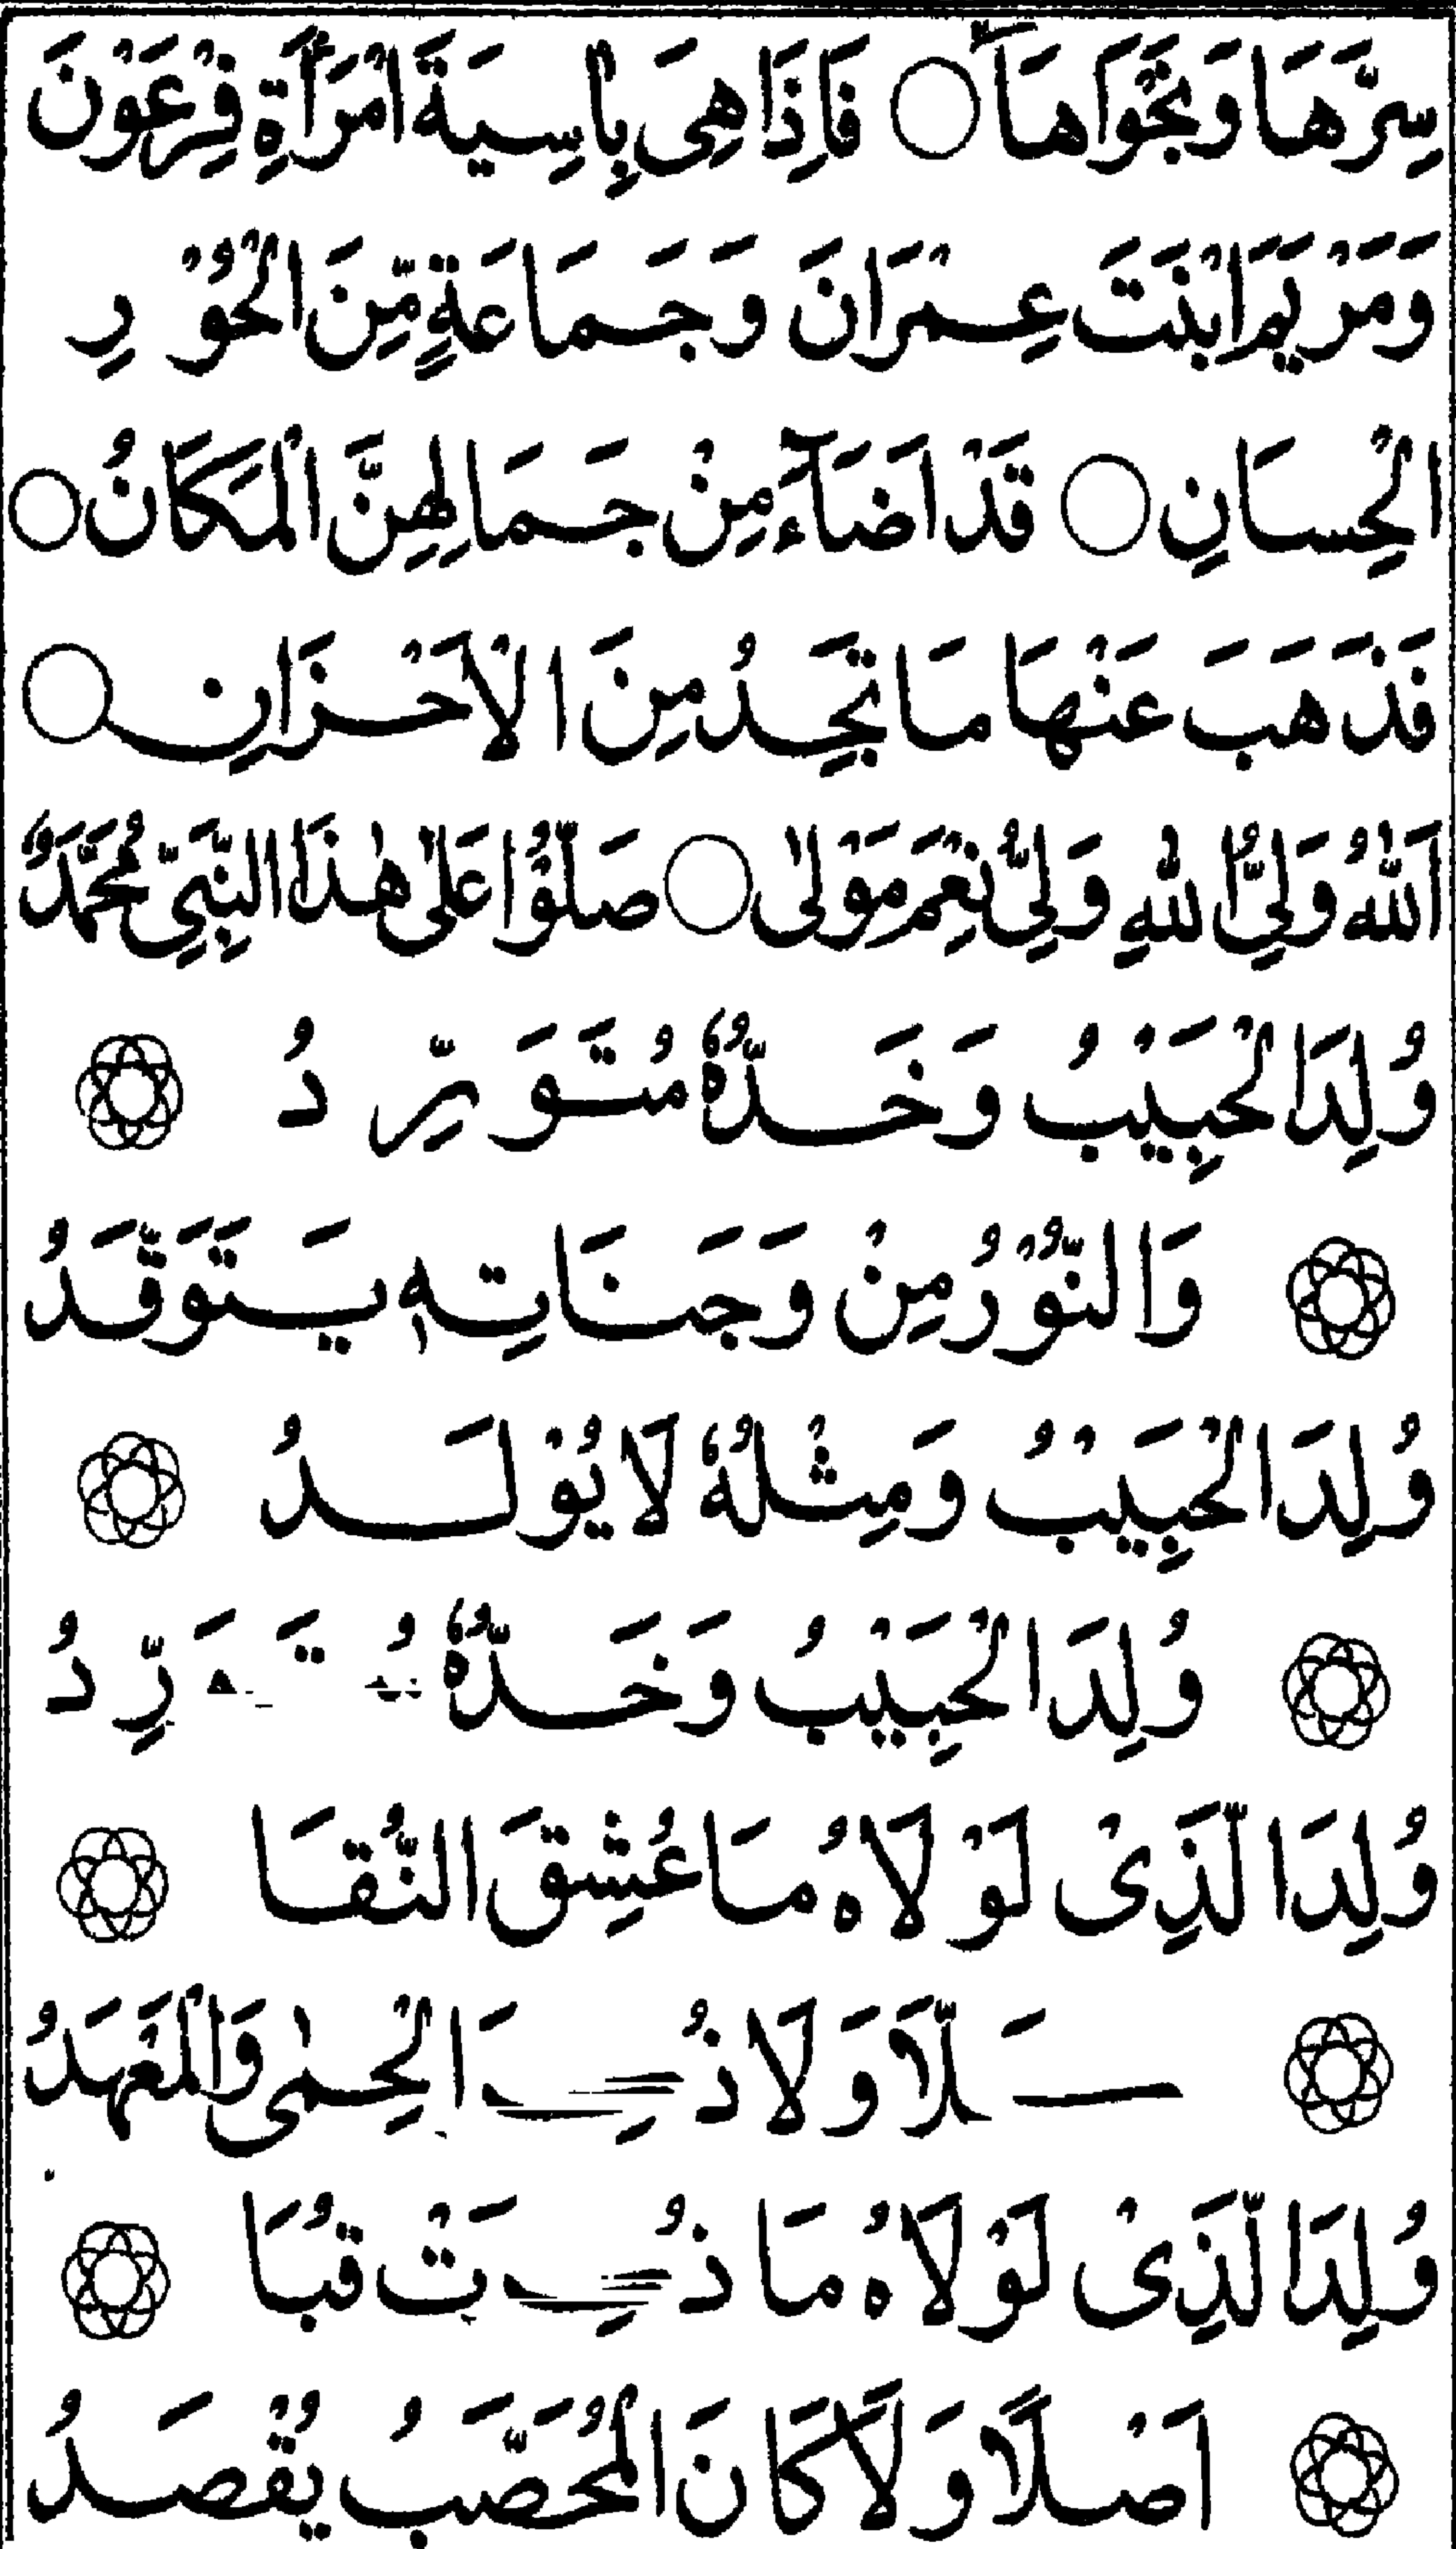 سِرَّهَا وَنَجْوَاهَا ○ فَاِذَا هِىَ بِاٰسِيَةَ امْرَأَةِ فِرْعَوْنَ
وَمَرْيَمَ ابْنَتَ عِمْرَانَ وَجَمَاعَةٍ مِّنَ الْحُوْرِ
الْحِسَانِ ○ قَدْ اَضَآءَ مِنْ جَمَالِهِنَّ الْمَكَانُ ○
فَذَهَبَ عَنْهَا مَا تَجِدُ مِنَ الْاَحْزَانِ ○
اَللّٰهُ وَلِيُّ اللّٰهِ وَلِيُّ نِعْمَ مَوْلٰى ○ صَلُّوْا عَلٰى هٰذَا النَّبِيِّ مُحَمَّدٗ
وُلِدَ الْحَبِيْبُ وَخَدُّهٗ مُتَوَرِّدُ
وَالنُّوْرُ مِنْ وَجَنَاتِهٖ يَتَوَقَّدُ
وُلِدَ الْحَبِيْبُ وَمِثْلُهٗ لَا يُوْلَدُ
وُلِدَ الْحَبِيْبُ وَخَدُّهٗ رِّدُ
وُلِدَ الَّذِىْ لَوْلَاهُ مَا عُشِقَ النُّقَا
وَلَا الْحِمٰى وَالْمَعْهَدُ
وُلِدَ الَّذِىْ لَوْلَاهُ مَا قُبَا
اَصْلًا وَلَا كَانَ الْمُحَصَّبُ يُقْصَدُ